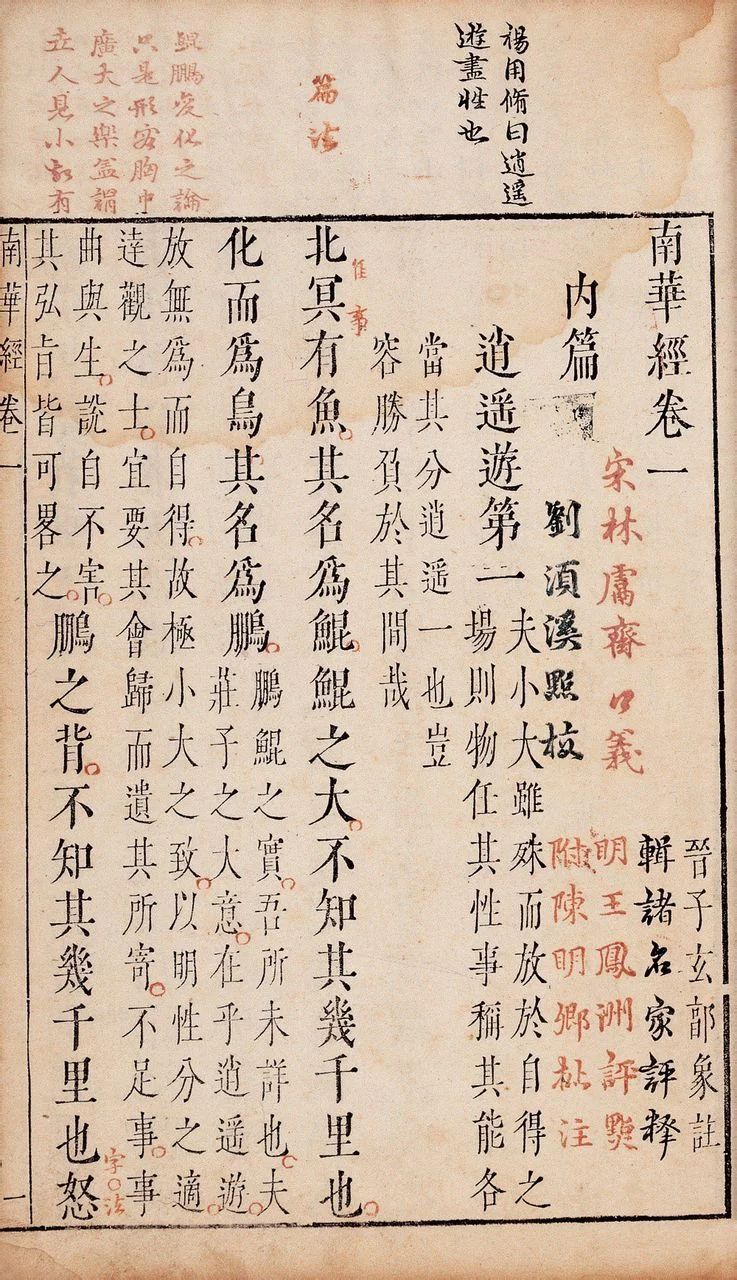 楊用脩曰逍遥
遊盡性也
篇法
鯤鵬變化之論
只是形容胸中
廣大之樂盖謂
世人見小故有
南華經卷一
晉子玄郭象註
輯諸名家評釋
宋林鬳齋口義
明王鳳洲評㸃
内篇
劉湏溪點校
附陳明卿批注
逍遥遊第一
夫小大雖殊而放於自得之
場則物任其性事稱其能各
當其分逍遥一也豈
容勝負於其間哉
北冥有魚其名爲鯤鯤之大不知其幾千里也
化而爲鳥其名爲鵬
鵬鯤之實吾所未詳也夫
莊子之大意在乎逍遥遊
放無爲而自得故極小大之致以明性分之適
達觀之士宜要其會歸而遺其所寄不足事事
曲與生說自不害
其弘旨皆可畧之
鵬之背不知其幾千里也怒
字法
南華經卷一
一